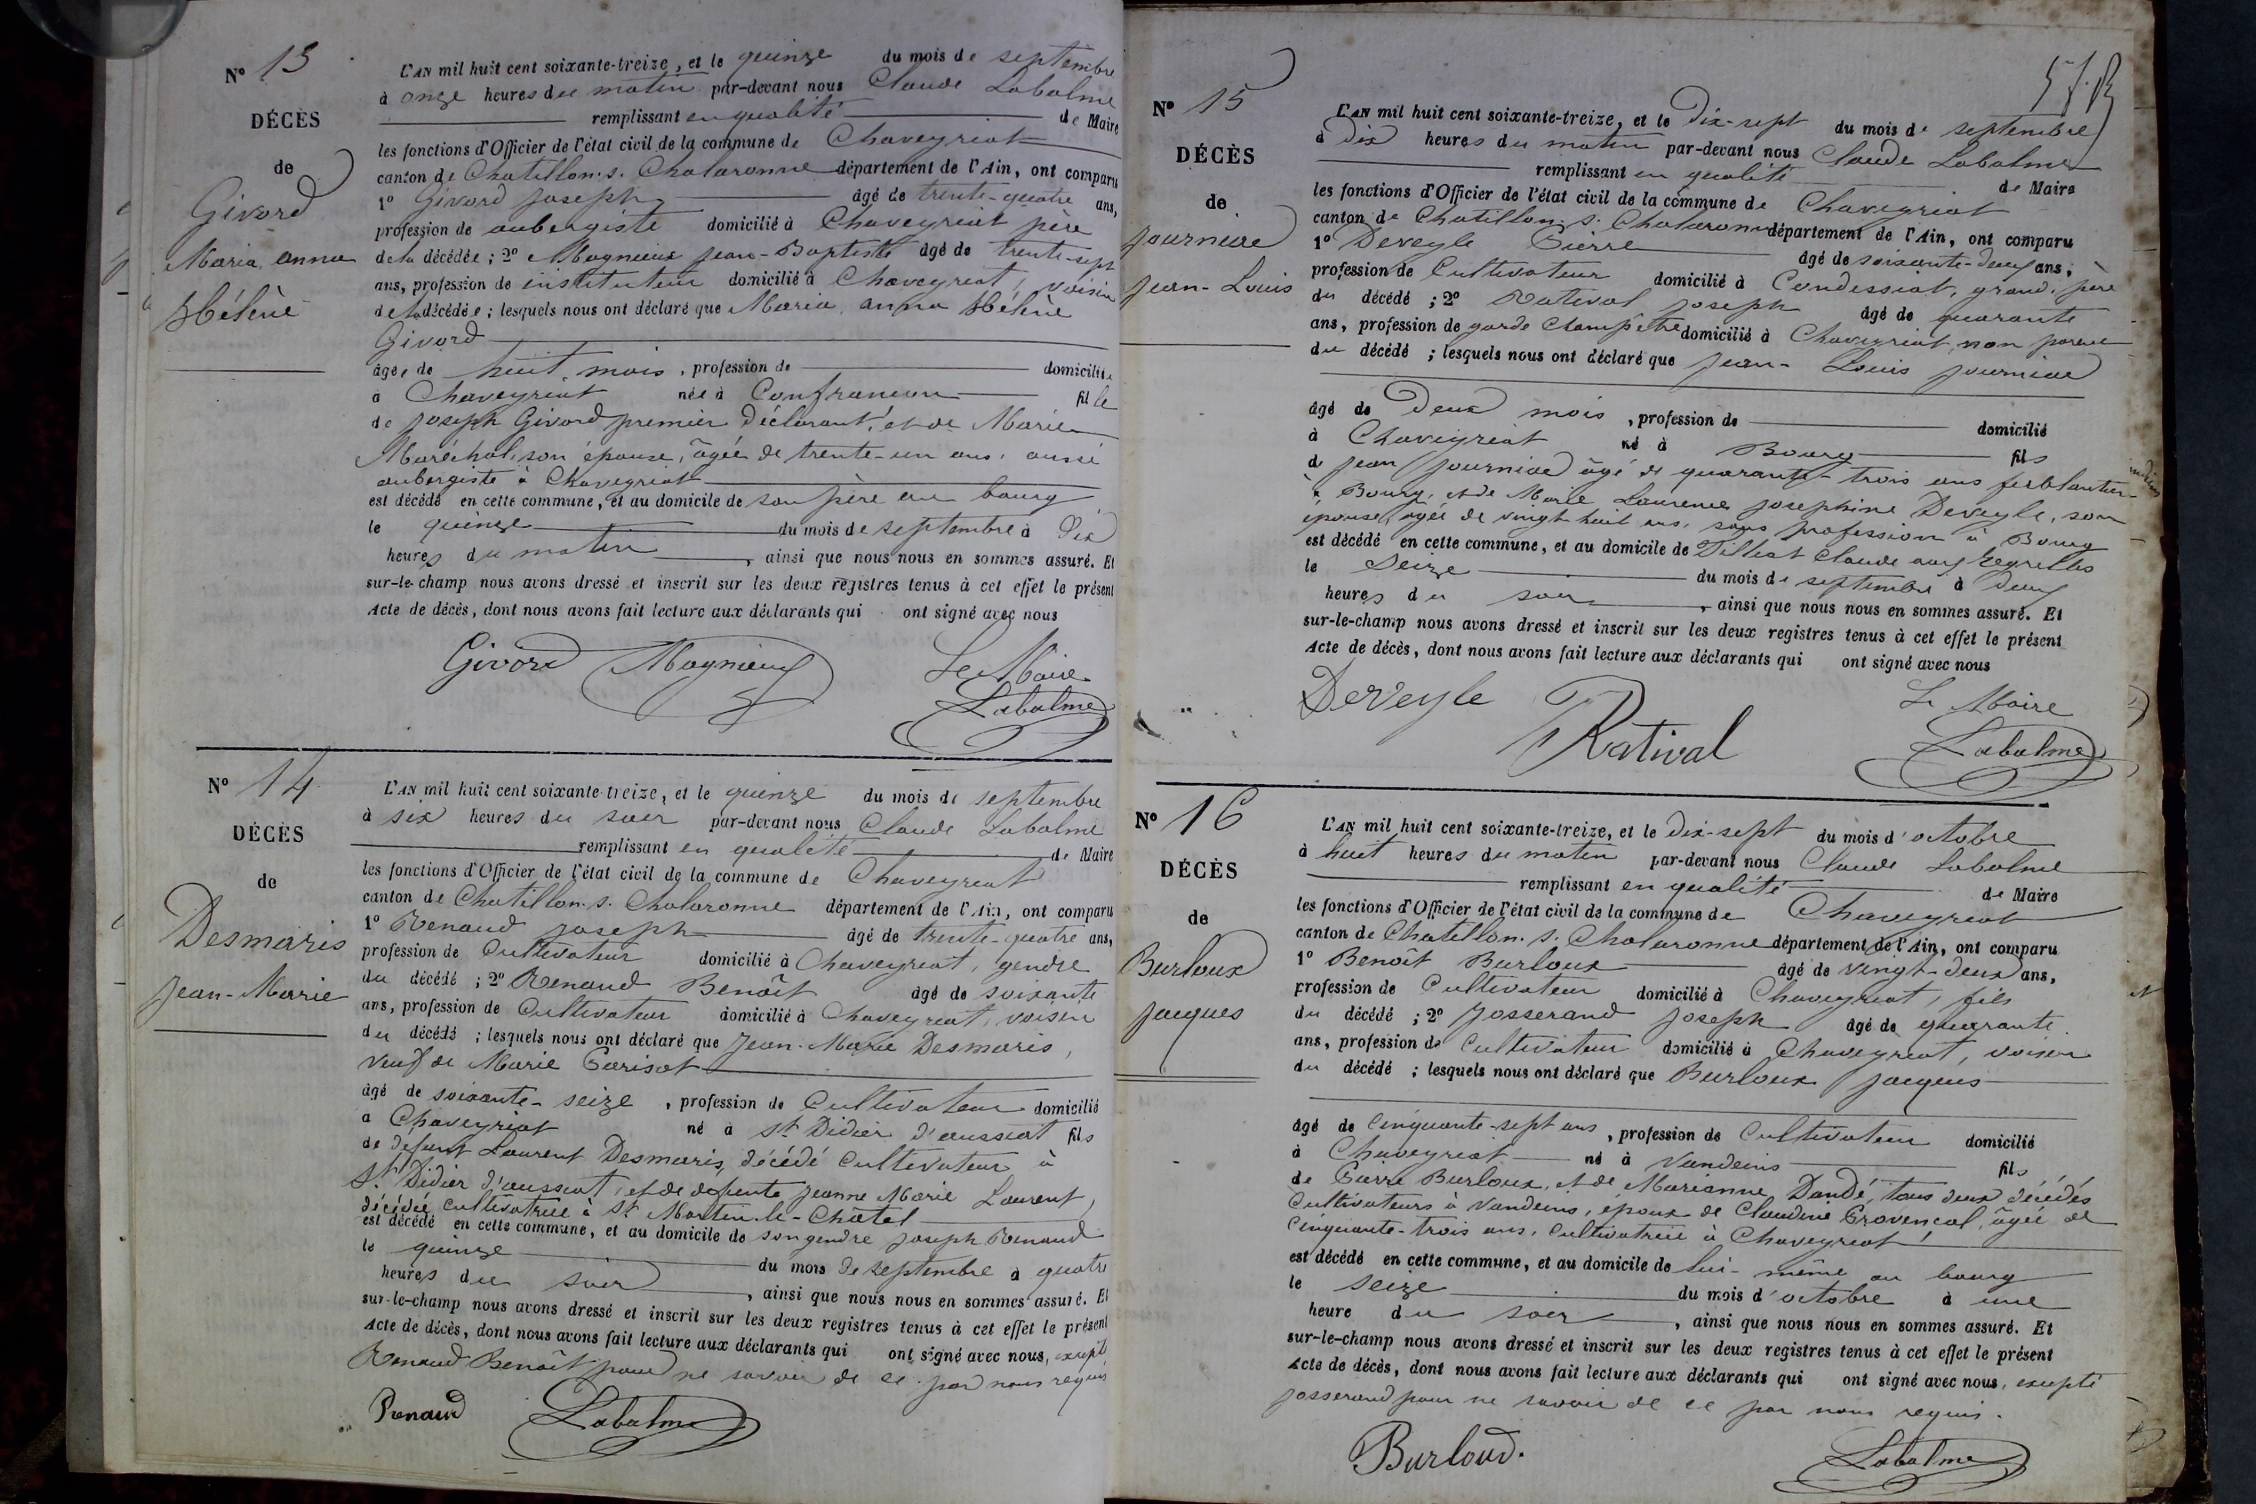 Nº 13
DÉCÈS
de
Givord
Maria anna
Hélène
L'AN mil huit cent soixante-treize, et le quinze du mois de septembre
à onze heures du matin par-devant nous Claude Labalme
remplissant en qualité de Maire
les fonctions d'Officier de l'état civil de la commune de Chaveyriat
canton de Chatillon s. Chalaronne département de l'Ain, ont comparu
1º Givord Joseph âgé de trente-quatre ans,
profession de aubergiste domicilié à Chaveyriat père
de la décédée ; 2º Magnieux Jean-Baptiste âgé de trente-sept
ans, profession de instituteur domicilié à Chaveyriat, voisin
de la décédée ; lesquels nous ont déclaré que Maria anna Hélène
Givord
âgée de huit mois, profession de domiciliée
à Chaveyriat née à Confrancon fille
de Joseph Givord premier déclarant, et de Marie
Maréchal, son épouse, âgée de trente-un ans, aussi
aubergiste à Chaveyriat
est décédé en cette commune, et au domicile de son père au bourg
le quinze du mois de septembre à Dix
heures du matin, ainsi que nous nous en sommes assuré. Et
sur-le-champ nous avons dressé et inscrit sur les deux registres tenus à cet effet le présent
Acte de décès, dont nous avons fait lecture aux déclarants qui ont signé avec nous
Givord Magnieux Le Maire
Labalme
Nº 14
DÉCÈS
de
Desmaris
Jean-Marie
L'AN mil huit cent soixante-treize, et le quinze du mois de septembre
à six heures du soir par-devant nous Claude Labalme
remplissant en qualité de Maire
les fonctions d'Officier de l'état civil de la commune de Chaveyriat
canton de Chatillon s. Chalaronne département de l'Ain, ont comparu
1º Renaud Joseph âgé de trente-quatre ans,
profession de Cultivateur domicilié à Chaveyriat, gendre
du décédé ; 2º Renaud Benoît âgé de soixante
ans, profession de Cultivateur domicilié à Chaveyriat, voisin
du décédé ; lesquels nous ont déclaré que Jean-Marie Desmaris,
veuf de Marie Parisat
âgé de soixante-seize, profession de Cultivateur domicilié
à Chaveyriat né à St Didier d'aussiat fils
de defunt Laurent Desmaris, décédé Cultivateur à
St Didier d'aussiat, et de defunte Jeanne Marie Laurent,
décédée Cultivatrice à St Martin-le-Châtel
est décédé en cette commune, et au domicile de son gendre Joseph Renaud
le quinze du mois de septembre à quatre
heures du soir, ainsi que nous nous en sommes assuré. Et
sur-le-champ nous avons dressé et inscrit sur les deux registres tenus à cet effet le présent
Acte de décès, dont nous avons fait lecture aux déclarants qui ont signé avec nous, excepté
Renaud Benoît pour ne savoir de ce par nous requis
Renaud Labalme
Nº 15
DÉCÈS
de
Journiac
Jean-Louis
L'AN mil huit cent soixante-treize, et le Dix-sept du mois de septembre
à Dix heures du matin par-devant nous Claude Labalme
remplissant en qualité de Maire
les fonctions d'Officier de l'état civil de la commune de Chaveyriat
canton de Chatillon s. Chalaronne département de l'Ain, ont comparu
1º Deveyle Pierre âgé de soixante-deux ans,
profession de Cultivateur domicilié à Condessiat, grand-père
du décédé ; 2º Ratival Joseph âgé de quarante
ans, profession de garde Champêtre domicilié à Chaveyriat, non parent
du décédé ; lesquels nous ont déclaré que Jean-Louis Journiac
âgé de Deux mois, profession de domicilié
à Chaveyriat né à Bourg fils
de Jean Journiac âgé de quarante-trois ans ferblantier
à Bourg, et de Marie Laurence Josephine Deveyle, son
épouse, âgée de vingt huit ans, sans profession à Bourg
est décédé en cette commune, et au domicile de Tilliat Claude aux
le Seize du mois de septembre à Deux
heures du soir, ainsi que nous nous en sommes assuré. Et
sur-le-champ nous avons dressé et inscrit sur les deux registres tenus à cet effet le présent
Acte de décès, dont nous avons fait lecture aux déclarants qui ont signé avec nous
DeVeyle Ratival Le Maire
Labalme
Nº 16
DÉCÈS
de
Burloux
Jacques
L'AN mil huit cent soixante-treize, et le Dix-sept du mois d'octobre
à huit heures du matin par-devant nous Claude Labalme
remplissant en qualité de Maire
les fonctions d'Officier de l'état civil de la commune de Chaveyriat
canton de Chatillon s. Chalaronne département de l'Ain, ont comparu
1º Benoît Burloux âgé de vingt-deux ans,
profession de Cultivateur domicilié à Chaveyriat, fils
du décédé ; 2º Josserand Joseph âgé de quarante
ans, profession de Cultivateur domicilié à Chaveyriat, voisin
du décédé ; lesquels nous ont déclaré que Burloux Jacques
âgé de Cinquante-sept ans, profession de Cultivateur domicilié
à Chaveyriat né à Vandeins fils
de Pierre Burloux, et de Marianne Dandé, tous deux décédés
Cultivateurs à Vandeins, époux de Claudine Provencal, âgée de
Cinquante-trois ans, Cultivatrice à Chaveyriat
est décédé en cette commune, et au domicile de lui-même au bourg
le Seize du mois d'octobre à une
heure du soir, ainsi que nous nous en sommes assuré. Et
sur-le-champ nous avons dressé et inscrit sur les deux registres tenus à cet effet le présent
Acte de décès, dont nous avons fait lecture aux déclarants qui ont signé avec nous, excepté
Josserand pour ne savoir de ce par nous requis.
Burloud. Labalme